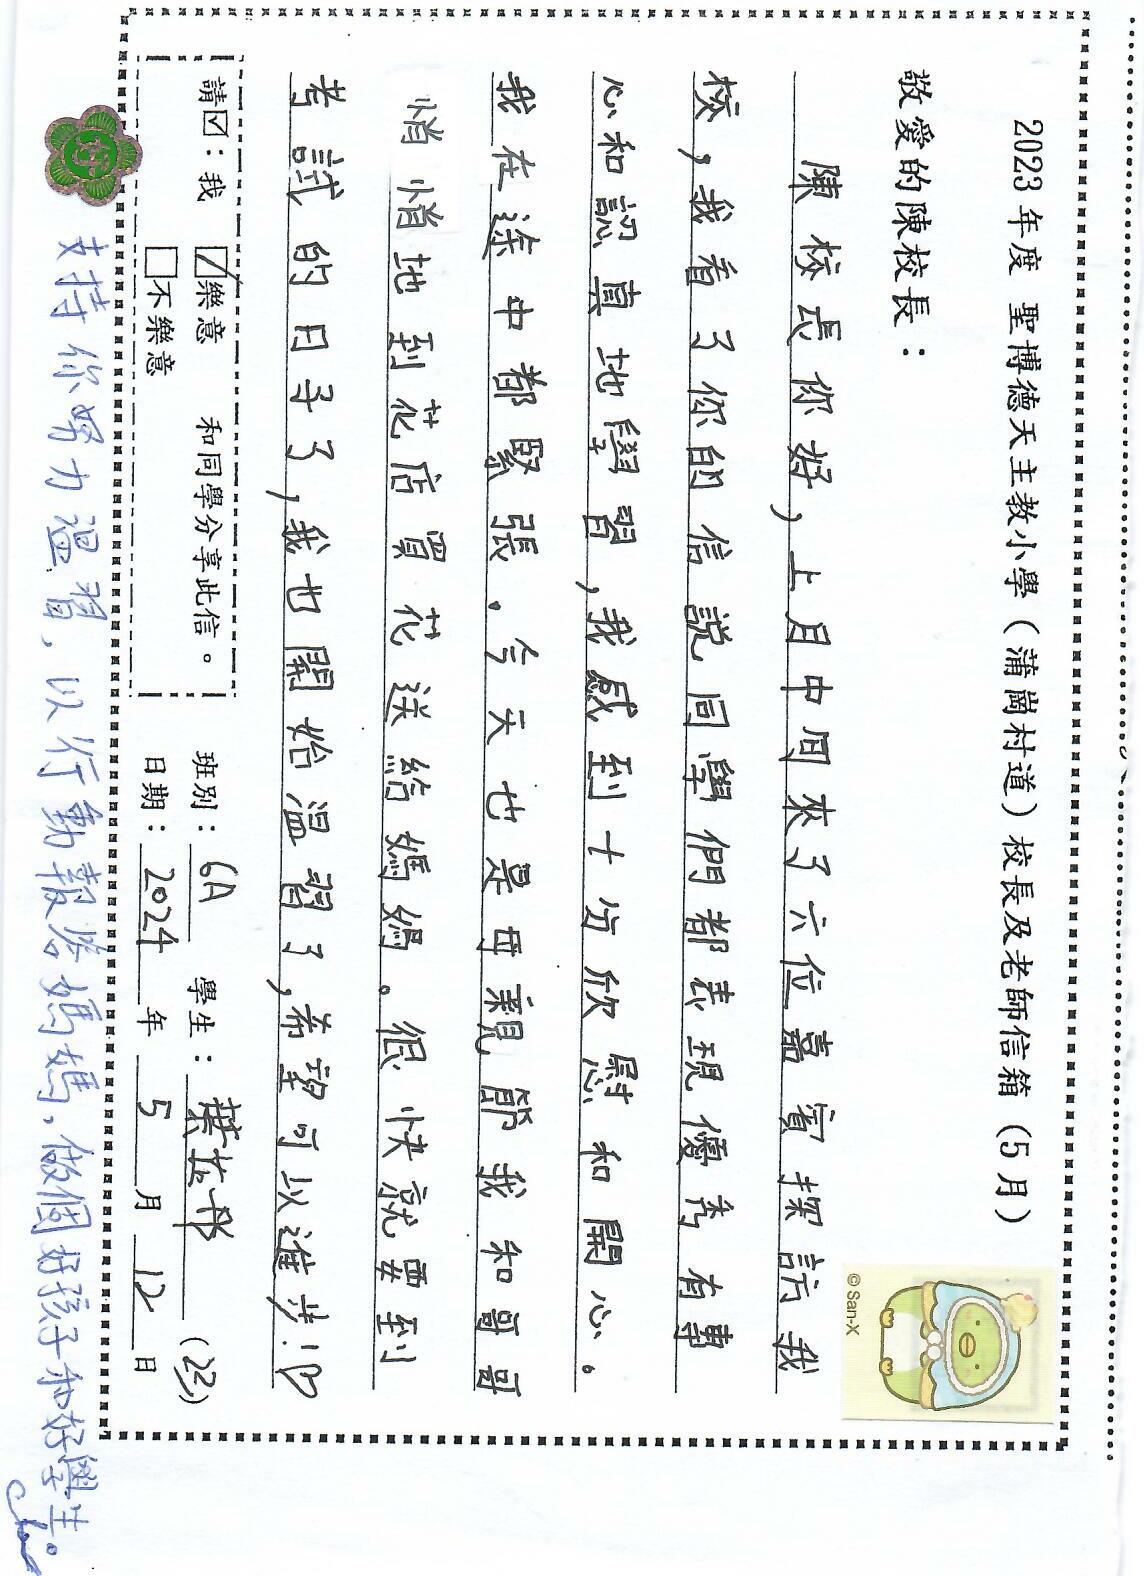 2023年度 聖博德天主教小學（蒲崗村道）校長及老師信箱（5月）
敬愛的陳校長：
© San-X
陳校長你好，上月中旬來了六位嘉賓探訪我
校，我看了你的信說同學們都表現優秀有專
心和認真地學習，我感到十分欣慰和開心。
我在途中都緊張。今天也是母親節我和哥哥
悄悄地到花店買花送給媽媽。很快就要到
考試的日子了，我也開始溫習了，希望可以進步！
請☑：我 ☑樂意 和同學分享此信。
□不樂意
班別：6A 學生：葉芷彤 (23)
日期：2024年5月12日
支持你努力溫習，以行動報答媽媽，做個好孩子和好學生。